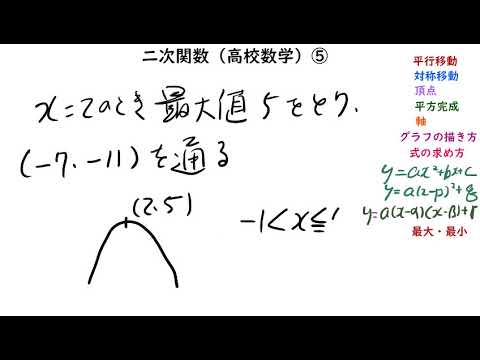 二次関数（高校数学）⑤
x=2のとき最大値5をとり、
(-7.-11)を通る
(2.5)
-1<x≦1
平行移動
対称移動
頂点
平方完成
軸
グラフの描き方
式の求め方
y=ax²+bx+c
y=a(x-p)²+q
y=a(x-α)(x-β)+r
最大・最小